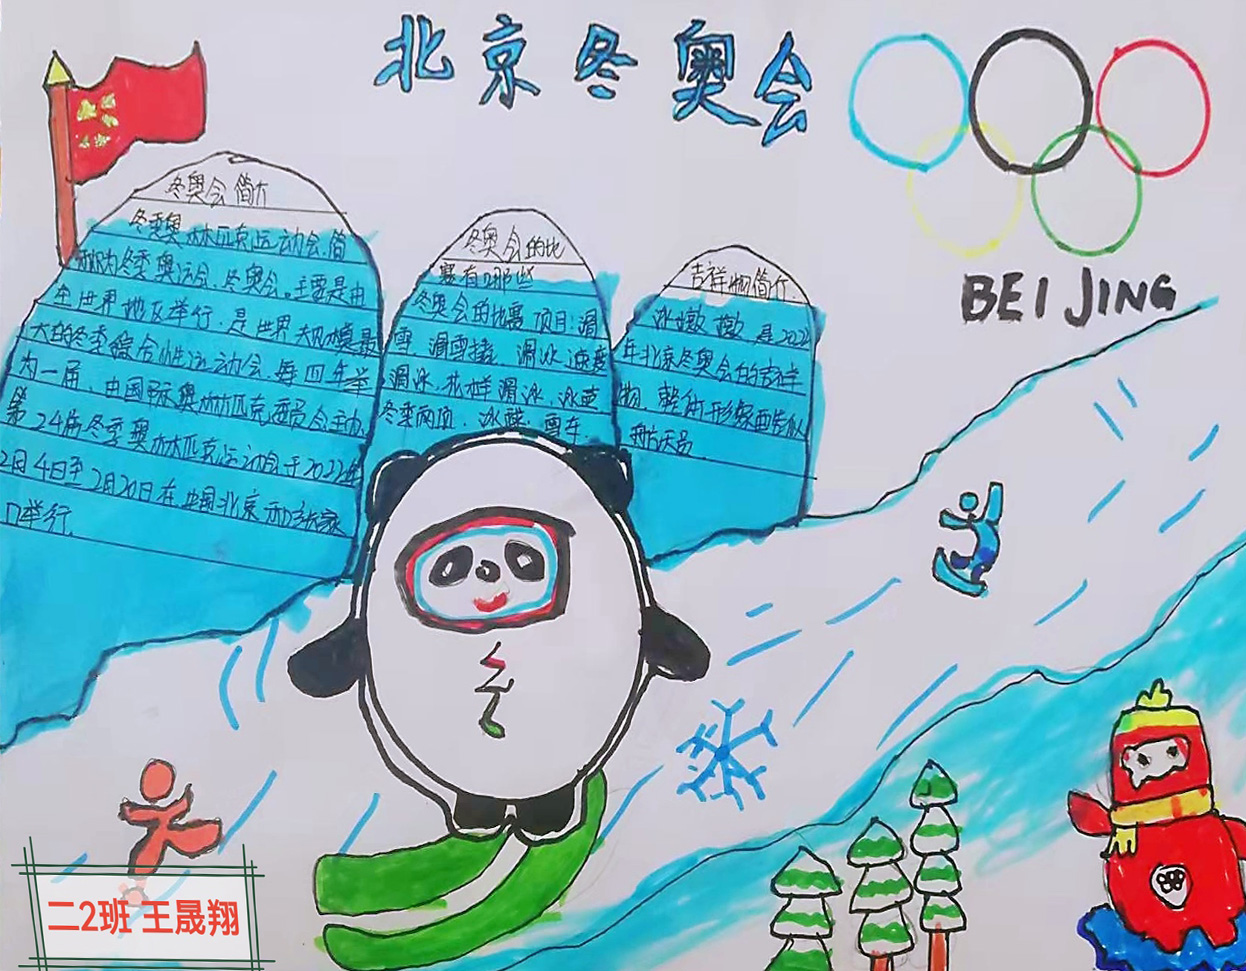 北京冬奥会
BEIJING
冬奥会简介
冬季奥林匹克运动会,简
称为冬季奥运会、冬奥会。主要是由
全世界地区举行,是世界规模最
大的冬季综合性运动会,每四年举
为一届、中国国际奥林匹克委员会主办,
第24届冬季奥林匹克运动会于2022年
2月4日至2月20日在中国北京和张家
口举行.
冬奥会的比
赛有哪些
冬奥会的比赛项目:滑
雪、滑雪橇、滑冰、速度
滑冰、花样滑冰、冰壶
冬季两项、冰球、雪车、
吉祥物简介.
冰墩墩是2022
年北京冬奥会的吉祥
物,整体形象酷似
航天员
冬
二2班 王晟翔